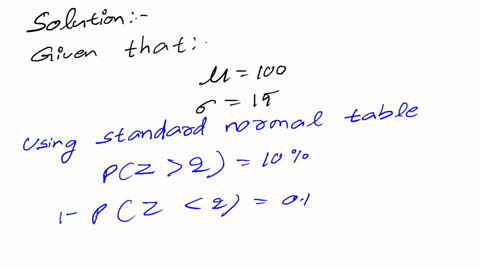 Solution:-
Given that:-
μ = 100
σ = 15
Using standard normal table
P(Z > z) = 10%
1- P(Z < z) = 0.1